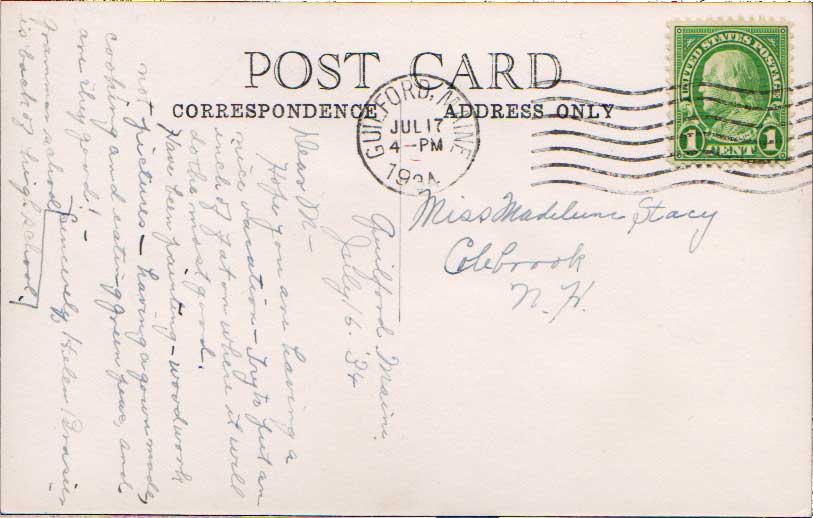 POST CARD
CORRESPONDENCE ADDRESS ONLY
GUILFORD, MAINE
JUL 17
4-PM
1934
UNITED STATES POSTAGE
1 CENT 1
Miss Madeleine Stacy
Colebrook
N. H.
Guilford Maine.
July 16 '34
Dear M—
Hope you are having a
nice vacation – Try to put an
inch of fat on where it will
do the most good.
Have been painting – woodwork
not pictures – having a gown made,
cooking and eating green peas, and
are they good! –
Sincerely, Helen
Grammar school
is back of high school.